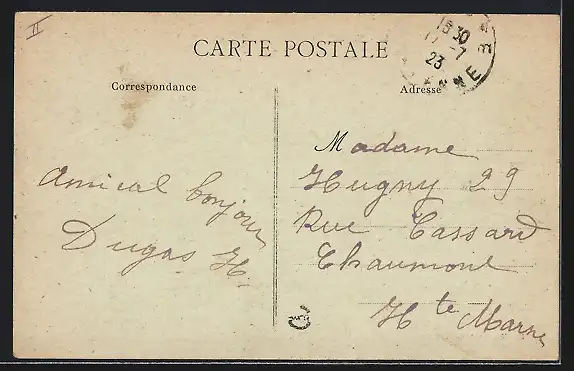 II
CARTE POSTALE
Correspondance
Adresse
18 30
11 -7
23
Amical bonjour
Dugas H.
Madame
Hugny 29
Rue Tassard
Chaumont
Hte Marne